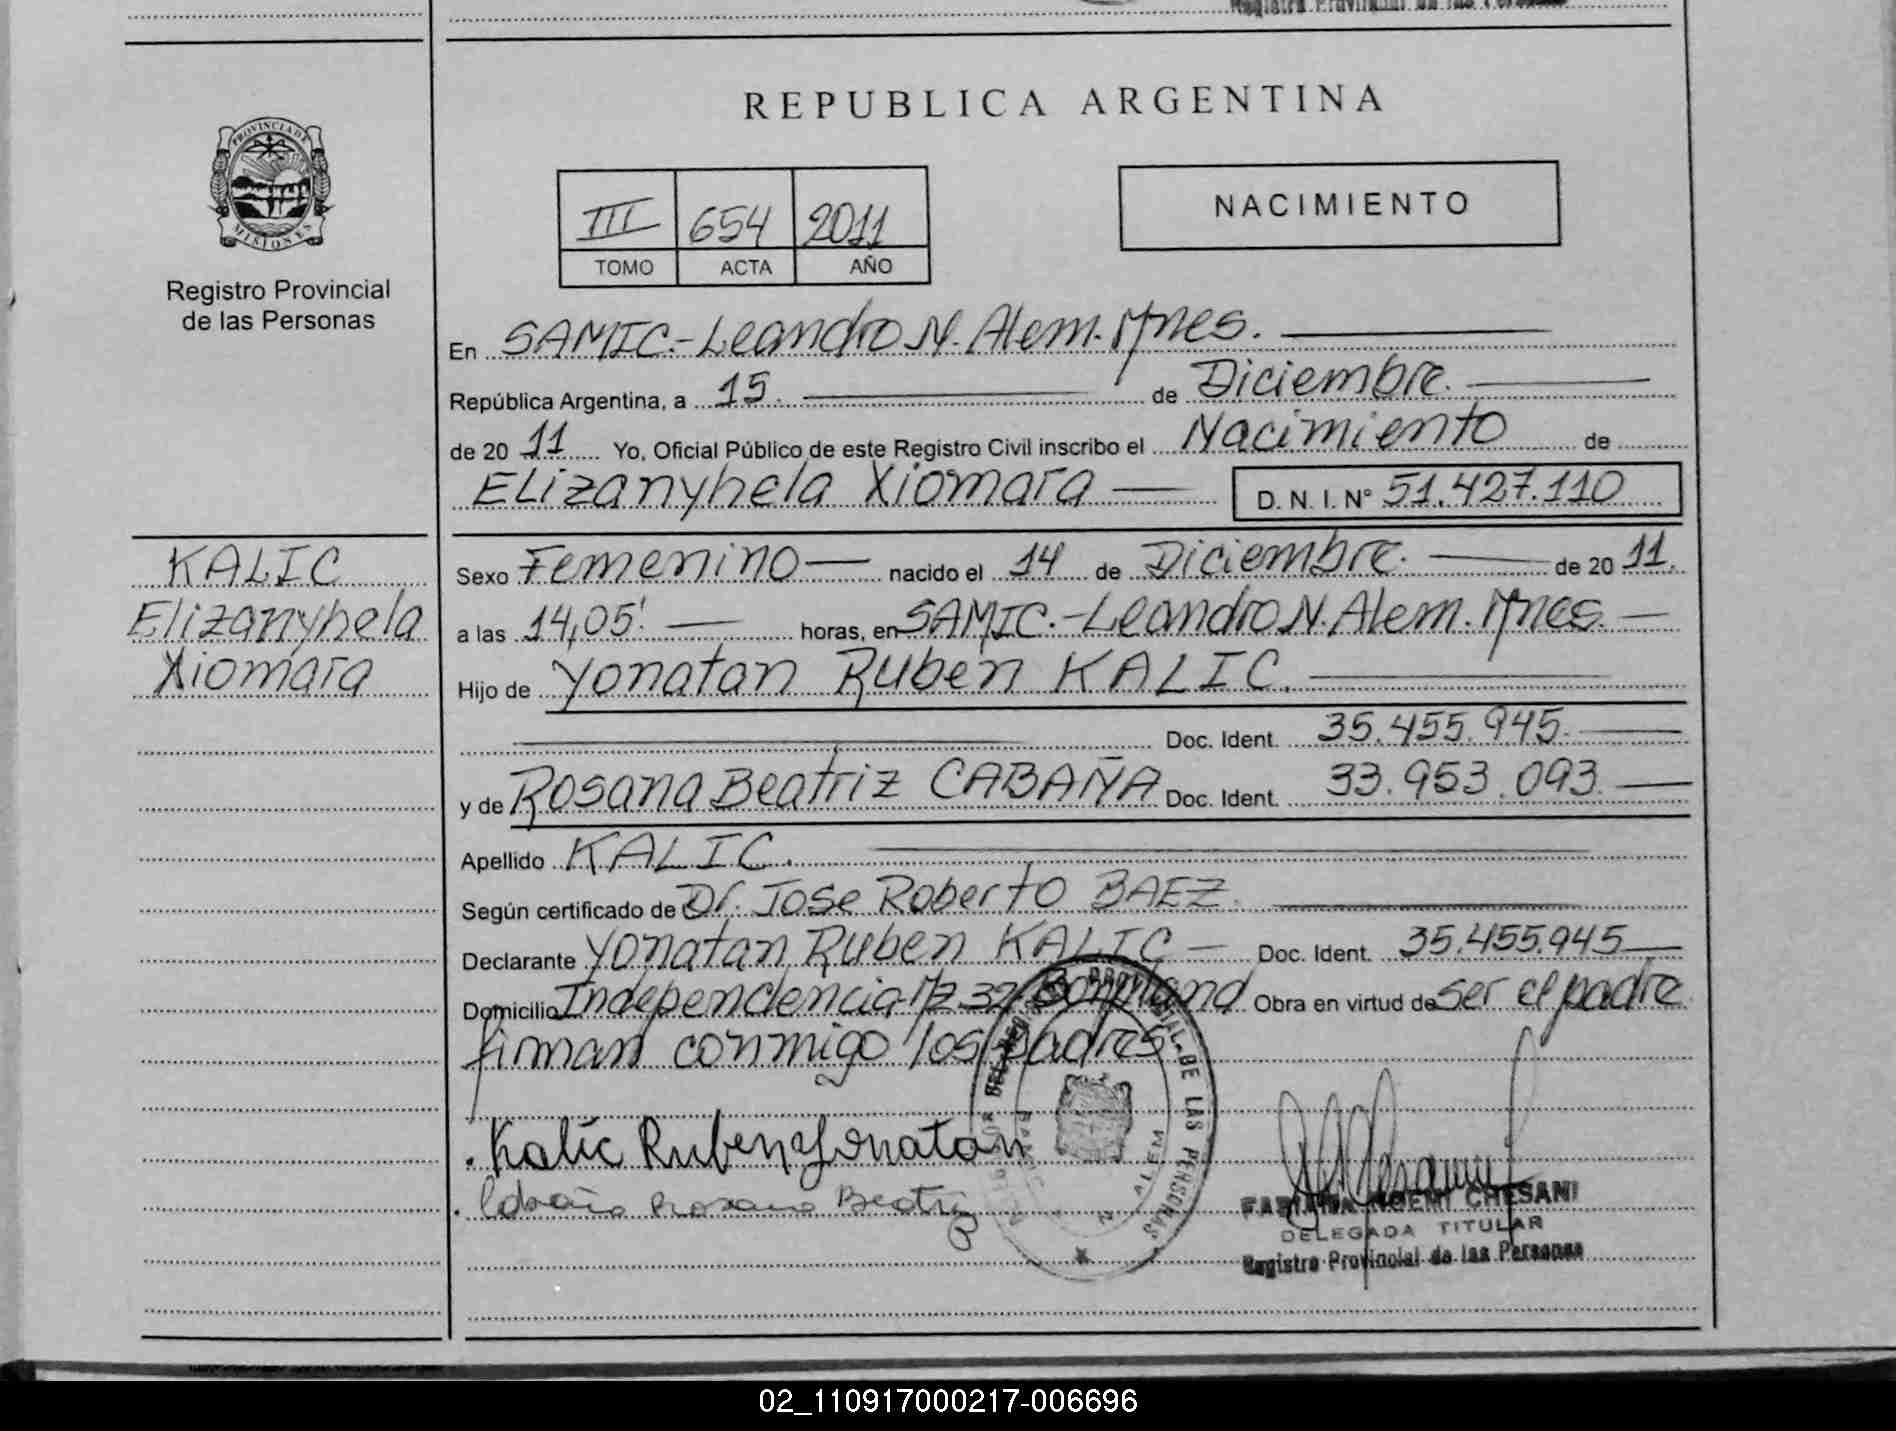 Registro Provincial de las Personas
REPUBLICA ARGENTINA
PROVINCIA DE
MISIONES
Registro Provincial
de las Personas
III 654 2011
TOMO ACTA AÑO
NACIMIENTO
En SAMIC.-Leandro N. Alem. Mnes.
República Argentina, a 15. de Diciembre.
de 20 11 Yo, Oficial Público de este Registro Civil inscribo el Nacimiento de
ELizanyhela Xiomara D. N. I. Nº 51.427.110
KALIC
Elizanyhela
Xiomara
Sexo Femenino nacido el 14 de Diciembre. de 20 11.
a las 14,05' horas, en SAMIC.-Leandro N. Alem. Mnes.
Hijo de Yonatan Ruben KALIC.
Doc. Ident. 35.455.945.
y de Rosana Beatriz CABAÑA Doc. Ident. 33.953.093.
Apellido KALIC.
Según certificado de Dr. Jose Roberto BAEZ.
Declarante Yonatan Ruben KALIC Doc. Ident. 35.455.945
Domicilio Independencia Mz 32 Bompland Obra en virtud de ser el padre
firman conmigo los padres
Kalic Ruben Yonatan
Cabaña Rosana Beatriz
DE LAS PERSONAS
N. ALEM
FABIANA NOEMI CHESANI
DELEGADA TITULAR
Registro Provincial de las Personas
02_110917000217-006696